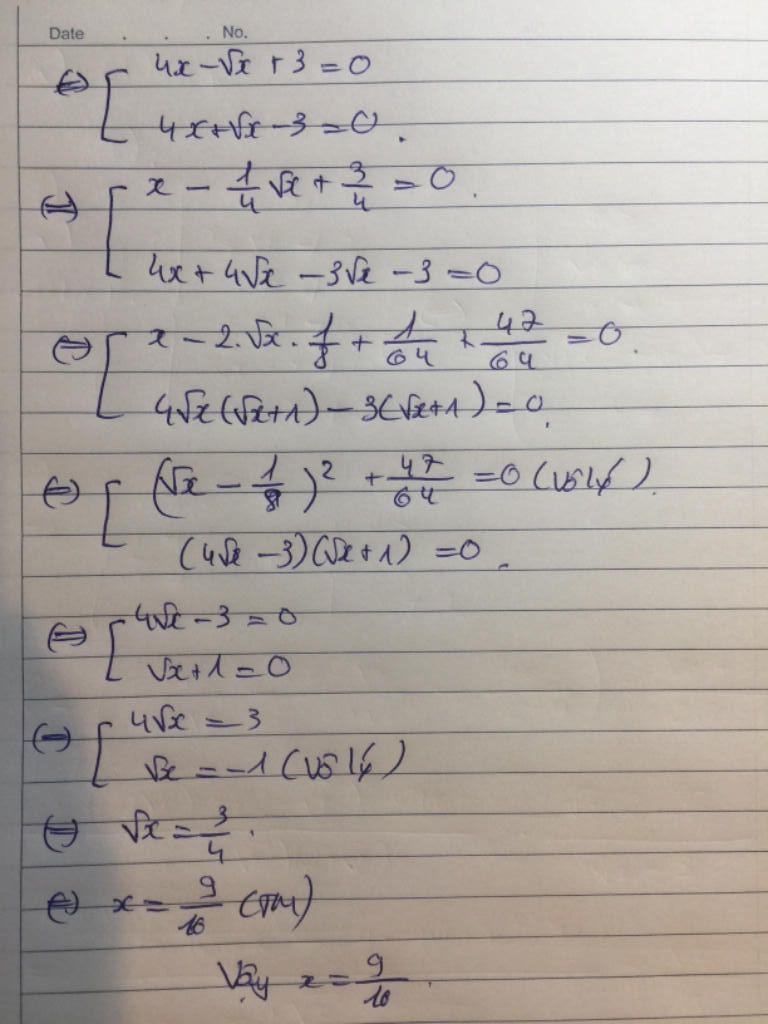 Date . . . No.
⇔ [ 4x - √x + 3 = 0
4x + √x - 3 = 0.
⇔ [ x - 1/4 √x + 3/4 = 0.
4x + 4√x - 3√x - 3 = 0
⇔ [ x - 2.√x.1/8 + 1/64 + 47/64 = 0.
4√x(√x+1) - 3(√x+1) = 0.
⇔ [ (√x - 1/8)² + 47/64 = 0 (Vô lý).
(4√x - 3)(√x+1) = 0.
⇔ [ 4√x - 3 = 0
√x + 1 = 0
⇔ [ 4√x = 3
√x = -1 (Vô lý)
⇔ √x = 3/4.
⇔ x = 9/16 (TM)
Vậy x = 9/16.